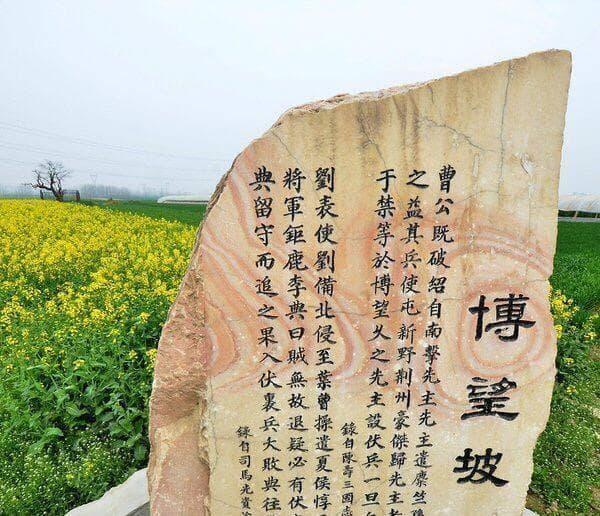 博望坡
曹公既破紹自南擊先主先主遣麋竺孫
之益其兵使屯新野荊州豪傑歸先主者
于禁等於博望久之先主設伏兵一旦
錄自陳壽三國志
劉表使劉備北侵至葉曹操遣夏侯惇
將軍鉅鹿李典曰賊無故退疑必有伏
典留守而追之果入伏裏兵大敗典往
錄自司馬光資